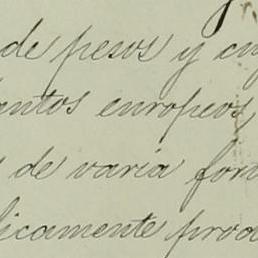 de pesos y cu
antos europeos,
de varia for
licamente prod